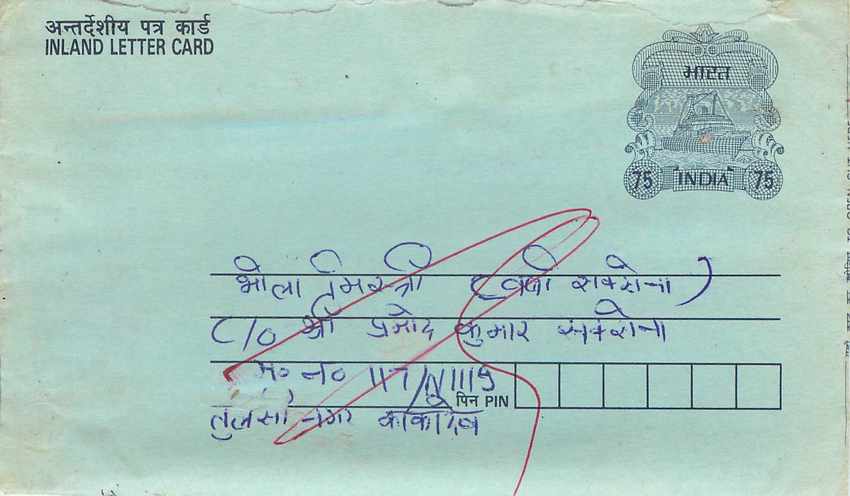 अन्तर्देशीय पत्र कार्ड
INLAND LETTER CARD
भारत
75 INDIA 75
भोला (वर्षा सक्सेना)
C/O श्री प्रमोद कुमार सक्सेना
म० न० 117/N/119
पिन PIN
तुलसी नगर काकादेव